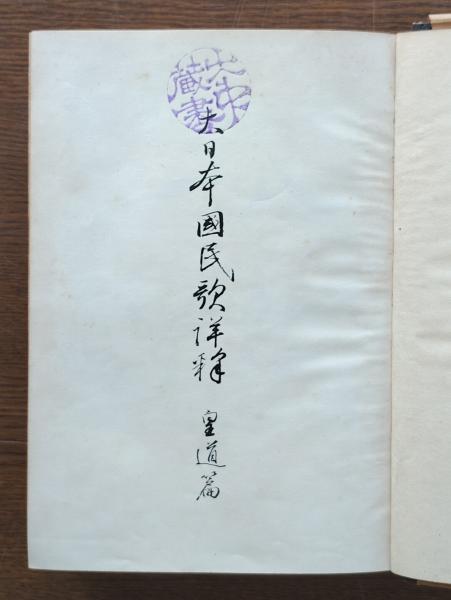 大日本國民歌詳釋 皇道篇
藏書